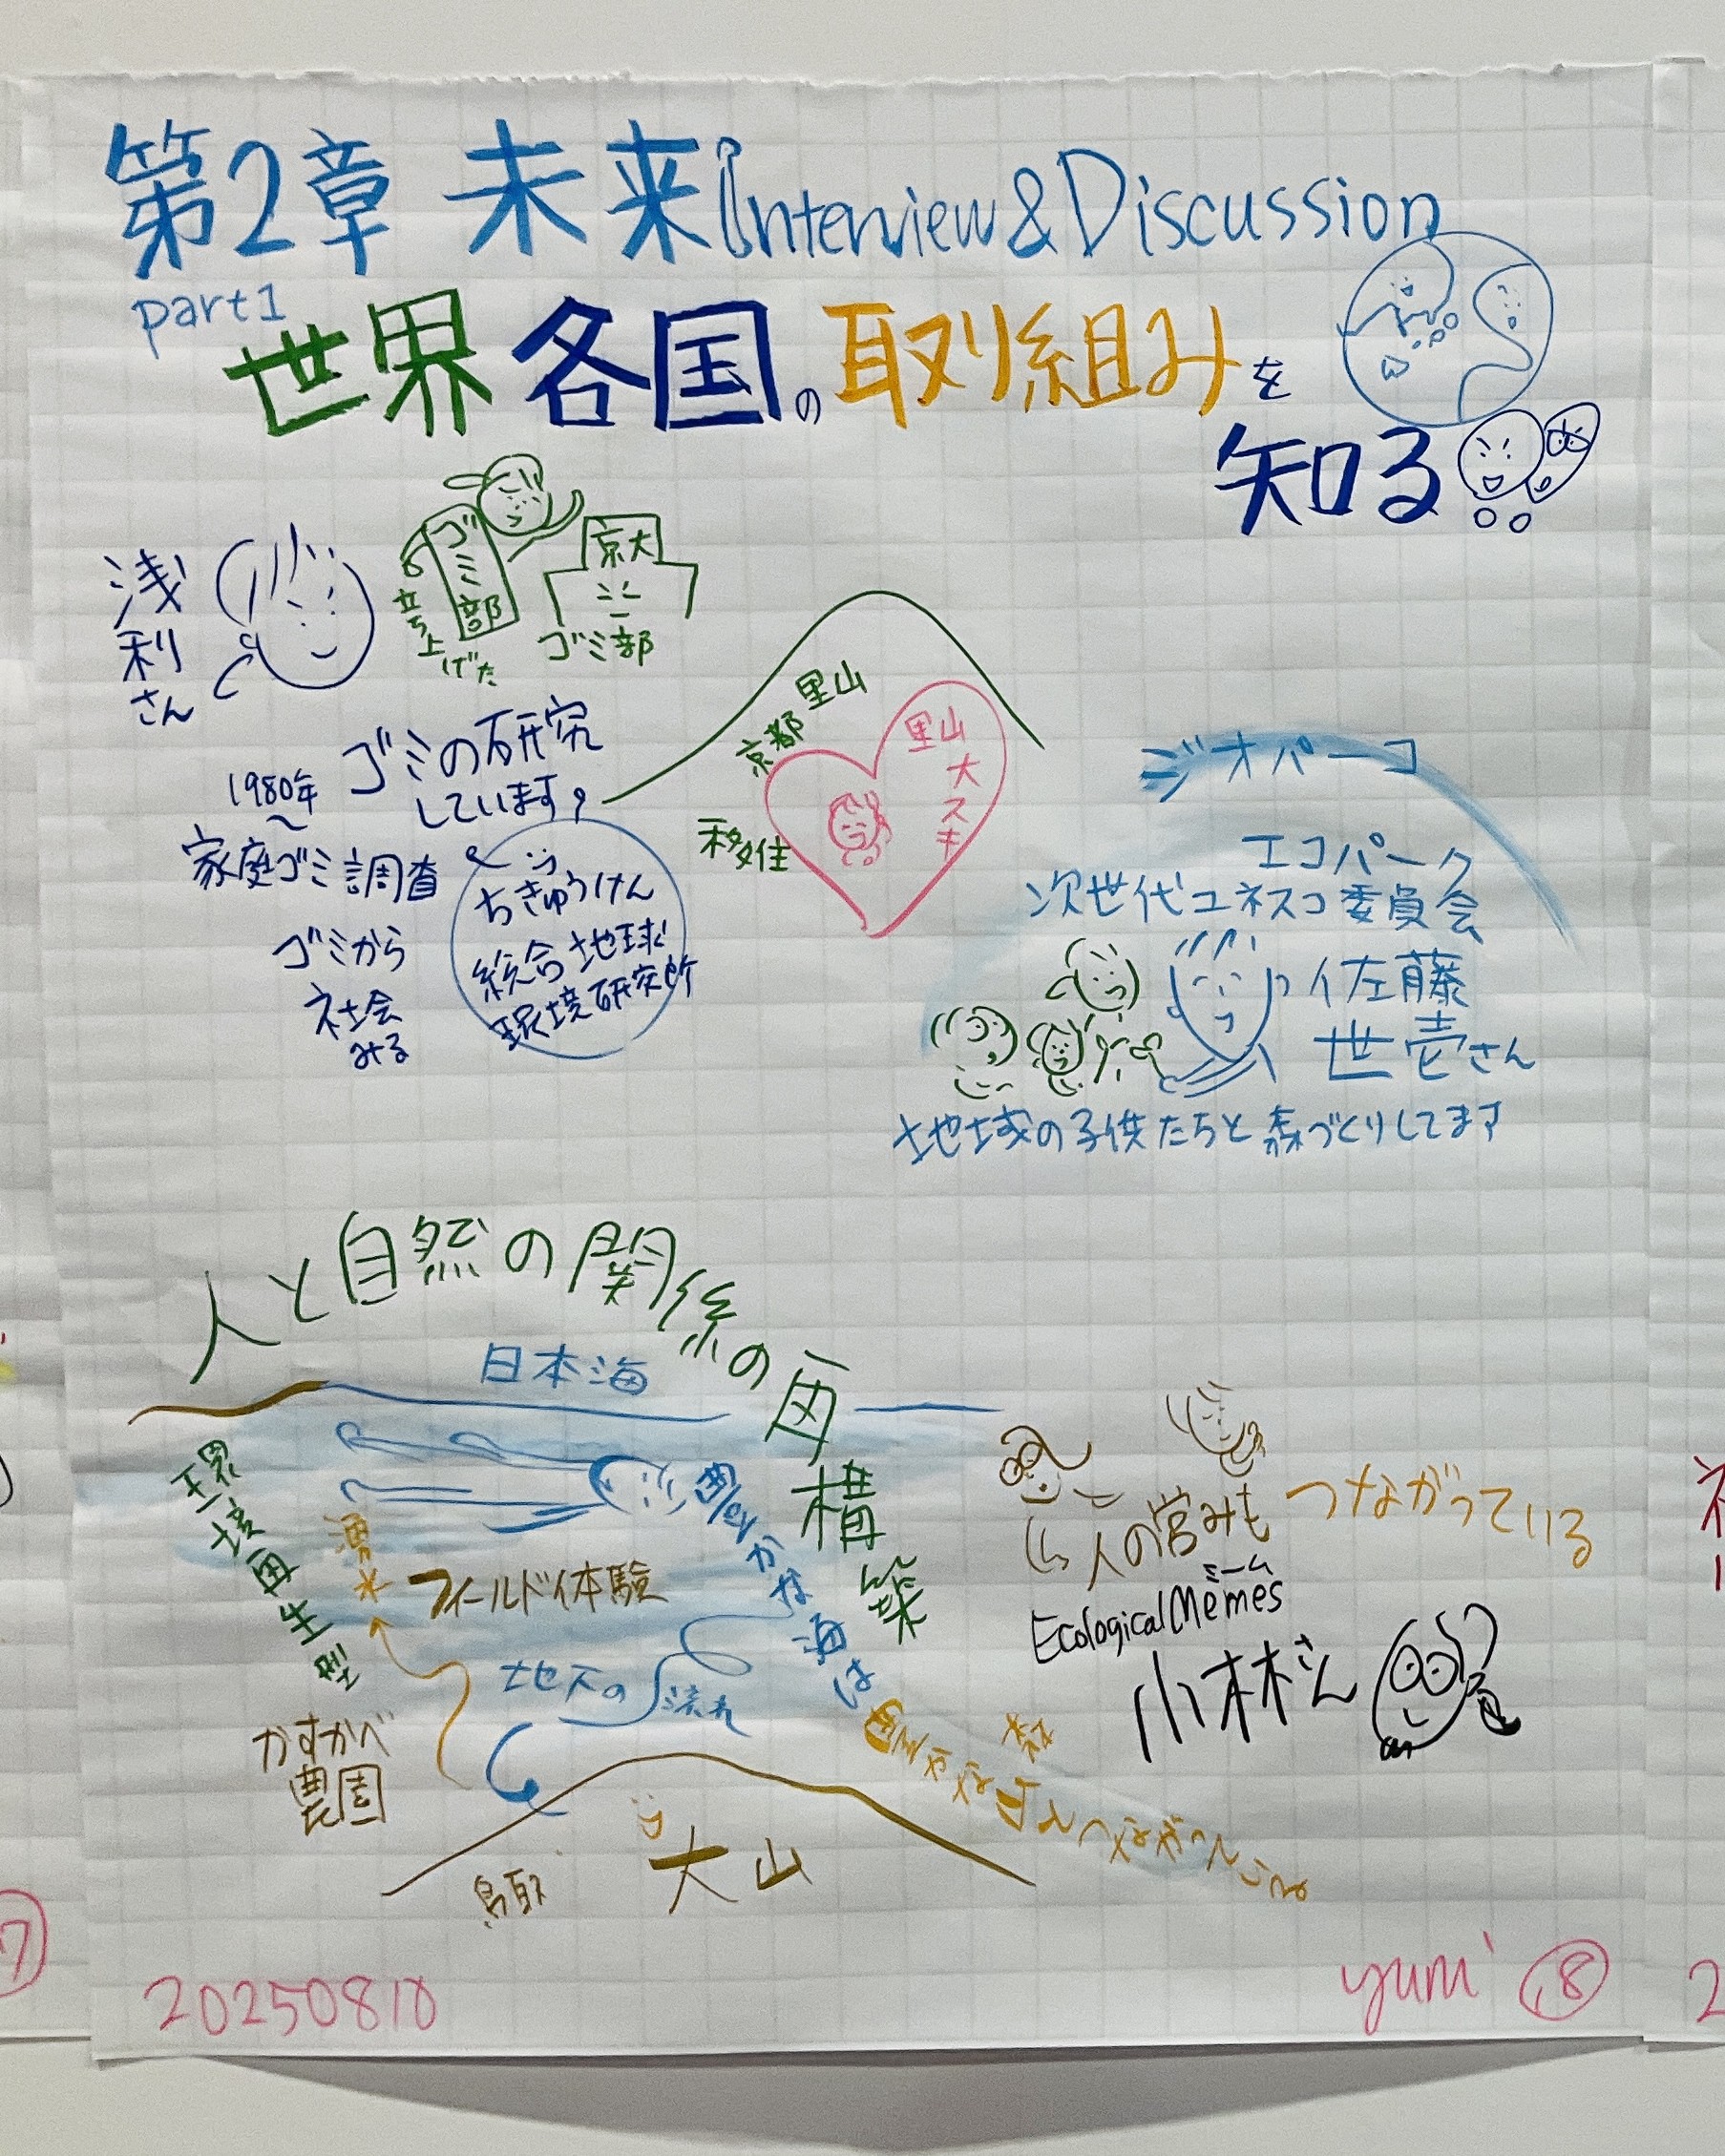 第2章 未来 Interview&Discussion
part1
世界各国の取組みを
知る
浅利さん
ゴミ部
立ち上げた
京大
ゴミ部
ゴミの研究
しています。
1980年
〜
家庭ゴミ調査
ゴミから
社会
みる
ちきゅうけん
総合地球
環境研究所
京都 里山
移住
里山
大スキ
ジオパーコ
エコパーク
次世代ユネスコ委員会
佐藤
世壱さん
地域の子供たちと森づくりしてます
人と自然の関係の再構築
日本海
環境再生型
湧水
フィールド体験
豊かな海は
豊かな森
地下の流れ
かすかべ
農園
鳥取
大山
人の営みも つながっている
ミーム
Ecological Memes
小林さん
20250810
yumi 18
7